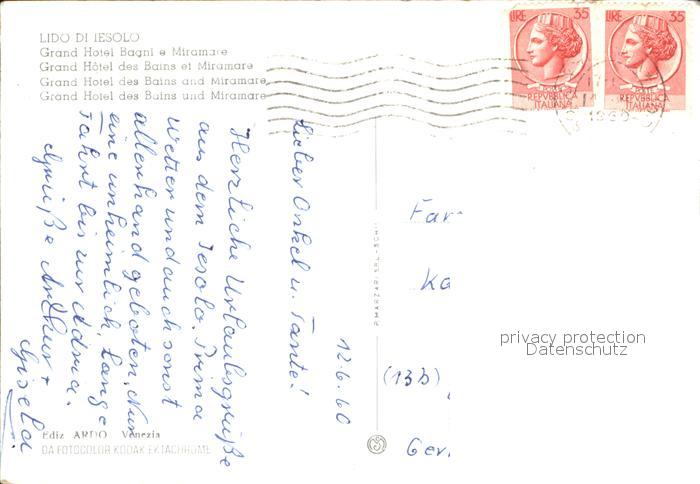 LIDO DI IESOLO
Grand Hotel Bagni e Miramare
Grand Hôtel des Bains et Miramare
Grand Hotel des Bains and Miramare
Grand Hotel des Bains und Miramare
LIRE 35
POSTE
REPVBBLICA
ITALIANA
LIRE 35
POSTE
REPVBBLICA
ITALIANA
12.6.60
Lieber Onkel u. Tante!
Herzliche Urlaubsgrüße
aus dem Jesolo. Prima
Wetter und auch sonst
allerhand geboten. Nur
eine unheimlich lange
Fahrt bis zur Adria.
Grüße Arthur +
Gisela
P. MARZARI S.R.L. - SCHIO
Fa
Ka
(13b)
Ger
privacy protection
Datenschutz
Ediz ARDO Venezia
DA FOTOCOLOR KODAK EKTACHROME